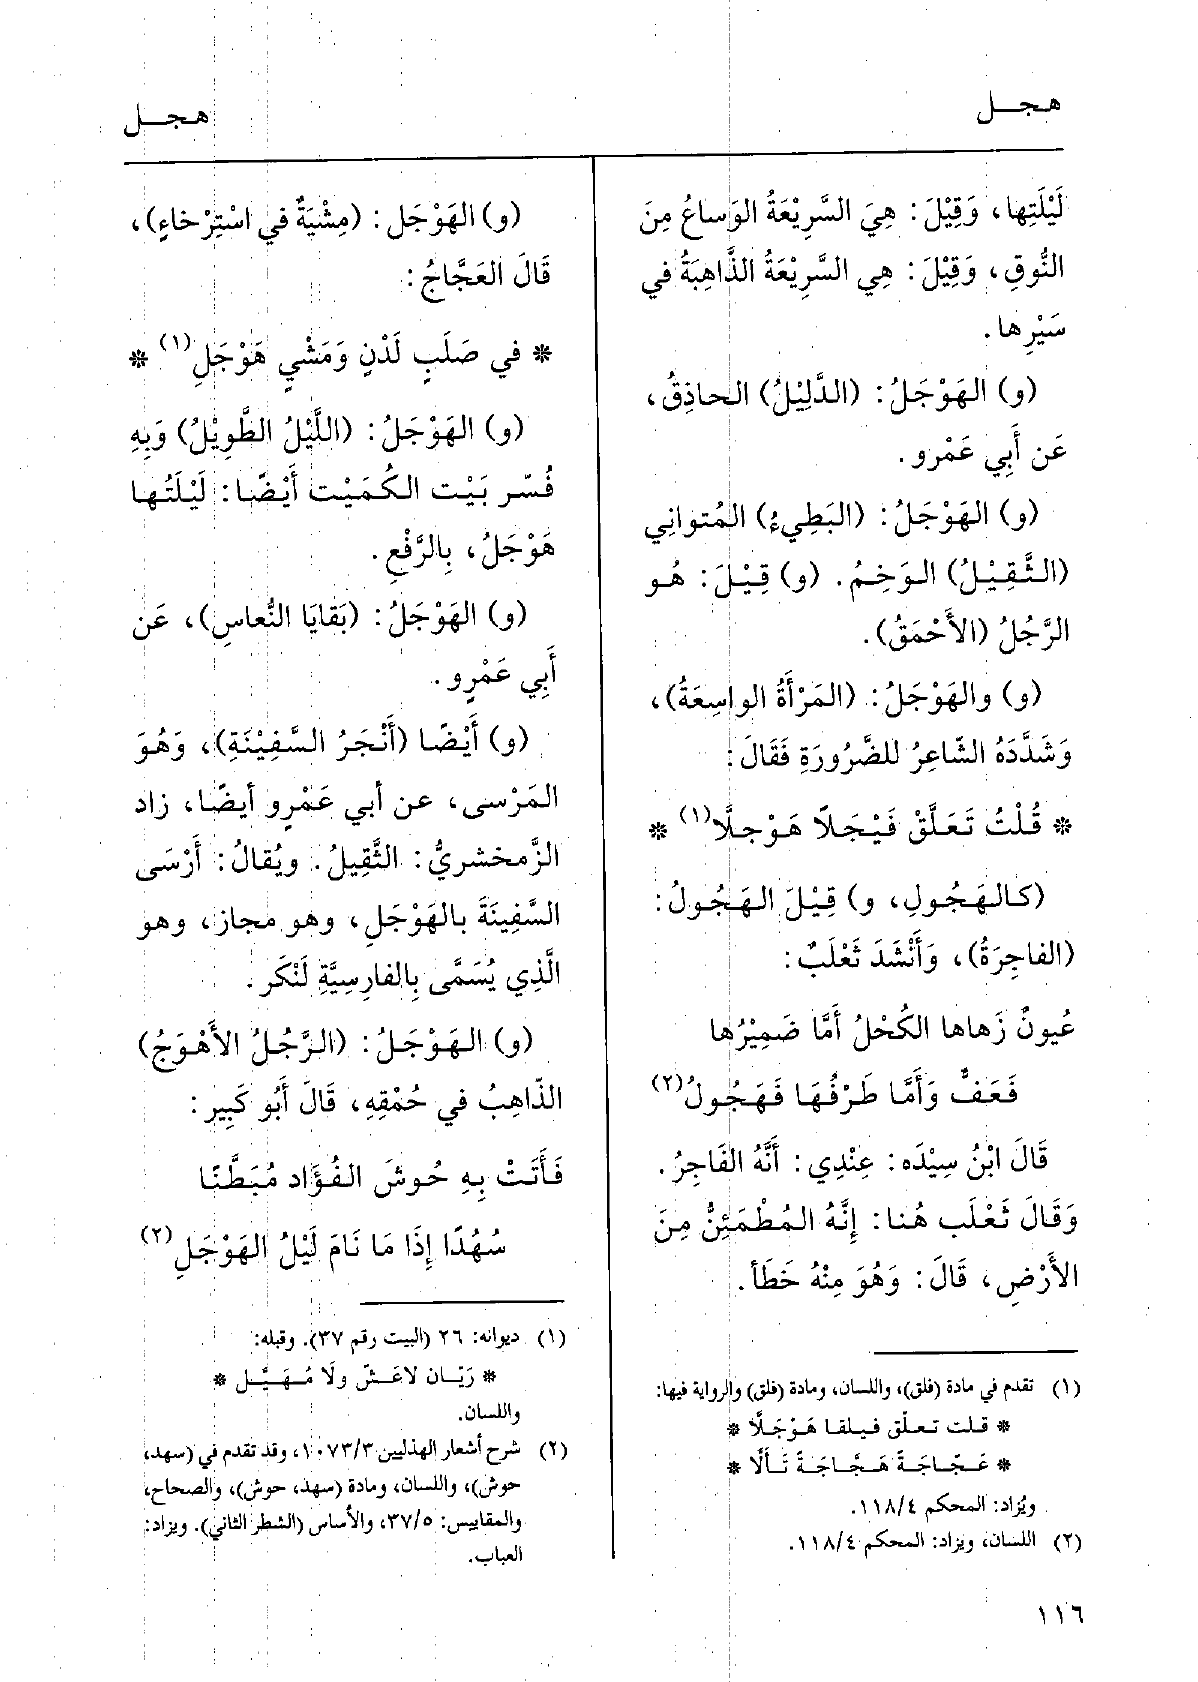 هجل
هجل
لَيْلَتِها، وَقِيْلَ: هِيَ السَّرِيْعَةُ الوَساعُ مِنَ
النُّوقِ، وَقِيْلَ: هِي السَّرِيْعَةُ الذَّاهِبَةُ في
سَيْرِها.
(و) الهَوْجَلُ: (الدَّلِيْلُ) الحاذِقُ،
عَن أَبِي عَمْرو.
(و) الهَوْجَلُ: (البَطِيءُ) المُتوانِي
(الثَّقِيْلُ) الوَخِمُ. (و) قِيْلَ: هُو
الرَّجُلُ (الأَحْمَقُ).
(و) والهَوْجَلُ: (المَرْأَةُ الواسِعَةُ)،
وَشَدَّدَهُ الشّاعِرُ للضَّرُورَةِ فَقَالَ:
* قُلْتُ تَعَلَّقْ فَيْجَلاً هَوْجلَّا(١) *
(كالهَجُولِ، و) قِيْلَ الهَجُولُ:
(الفاجِرَةُ)، وَأَنْشَدَ ثَعْلَبٌ:
عُيونٌ زَهاها الكُحْلُ أَمَّا ضَمِيْرُها
فَعَفٌّ وَأَمَّا طَرْفُهَا فَهَجُولُ(٢)
قَالَ ابْنُ سِيْدَه: عِنْدِي: أَنَّهُ الفَاجِرُ.
وَقَالَ ثَعْلَب هُنا: إِنَّهُ المُطْمَئِنُّ مِنَ
الأَرْضِ، قَالَ: وَهُوَ مِنْهُ خَطَأ.
(١) تقدم في مادة (فلق)، واللسان، ومادة (فلق) والرواية فيها:
* قلت تعلّق فيلقا هَوْجَلَّا *
* عَجّاجَةً هَجَّاجَةً تَألَّا *
ويُزاد: المحكم ٤/١١٨.
(٢) اللسان، ويزاد: المحكم ٤/١١٨.
(و) الهَوْجَل: (مِشْيَةٌ في اسْتِرْخاءٍ)،
قَالَ العَجَّاجُ:
* في صَلَبٍ لَدْنٍ وَمَشْيٍ هَوْجَلِ(١) *
(و) الهَوْجَلُ: (اللَّيْلُ الطَّوِيْلُ) وَبِهِ
فُسّر بَيْت الكُمَيْت أَيْضًا: لَيْلَتُها
هَوْجَلُ، بِالرَّفْعِ.
(و) الهَوْجَلُ: (بَقايَا النُّعاسِ)، عَن
أَبِي عَمْرٍو.
(و) أَيْضًا (أَنْجَرُ السَّفِيْنَةِ)، وَهُوَ
المَرْسى، عن أبي عَمْرٍو أيضًا، زاد
الزَّمخشريُّ: الثَّقِيلُ. ويُقالُ: أَرْسَى
السَّفِينَةَ بالهَوْجَلِ، وهو مجاز، وهو
الَّذِي يُسَمَّى بِالفارِسِيَّةِ لَنْكَر.
(و) الهَوْجَلُ: (الرَّجُلُ الأَهْوَجُ)
الذّاهِبُ في حُمْقِهِ، قَالَ أَبُو كَبِير:
فَأَتَتْ بِهِ حُوشَ الفُؤَاد مُبَطَّنًا
سُهُدًا إِذَا مَا نَامَ لَيْلُ الهَوْجَلِ(٢)
(١) ديوانه: ٢٦ (البيت رقم ٣٧). وقبله:
* رَيّان لاعَشّ ولَا مُهَيَّل *
واللسان.
(٢) شرح أشعار الهذليين ١٠٧٣/٣، وقد تقدم في (سهد،
حوش)، واللسان، ومادة (سهد، حوش)، والصحاح،
والمقاييس: ٣٧/٥، والأساس (الشطر الثاني). ويزاد:
العباب.
١١٦